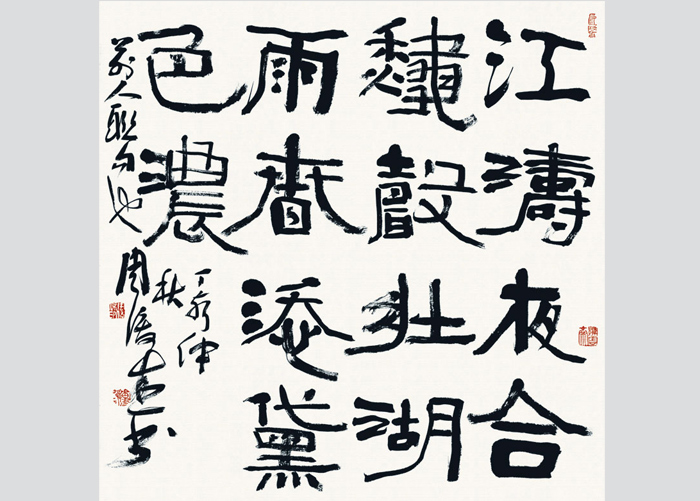 江濤夜合
龝聲壯湖
雨春添黛
色濃
丁酉仲
秋
前人聯句也
周俊杰書